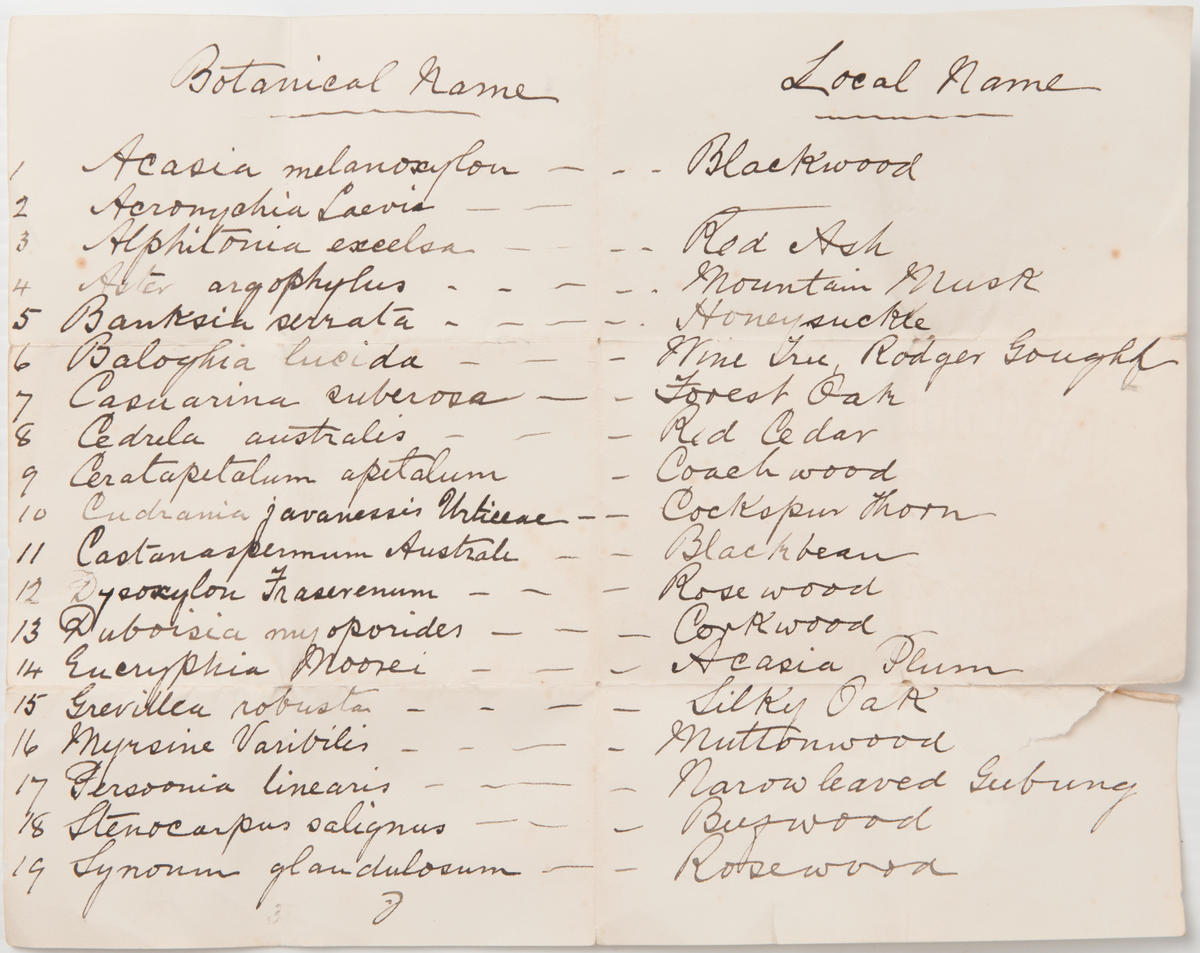 Botanical Name Local Name
1 Acasia melanoxylon — - - Blackwood
2 Acronychia Laevis — —
3 Alphitonia excelsa - — - - Red Ash
4 Aster argophylus - - — - - Mountain Musk
5 Banksia serrata - — — - Honeysuckle
6 Baloghia lucida — - — - Wine Tree, Rodger Gough
7 Casuarina suberosa — — - Forest Oak
8 Cedrela australis - — - Red Cedar
9 Ceratapetalum apetalum - Coach wood
10 Cudrania javanessis Urticeae — — Cockspur Thorn
11 Castanaspermum Australe - — - Blackbean
12 Dysoxylon Fraserenum — - — - Rose wood
13 Duboisia myoporides — — — Corkwood
14 Eucryphia Moorei - — — - Acasia Plum
15 Grevillea robusta - - — - Silky Oak
16 Myrsine Varibilis - - — - Muttonwood
17 Persoonia linearis - — — - Narow leaved Gubung
18 Stenocarpus salignus — — - Beefwood
19 Synoum glandulosum — — - Rosewood